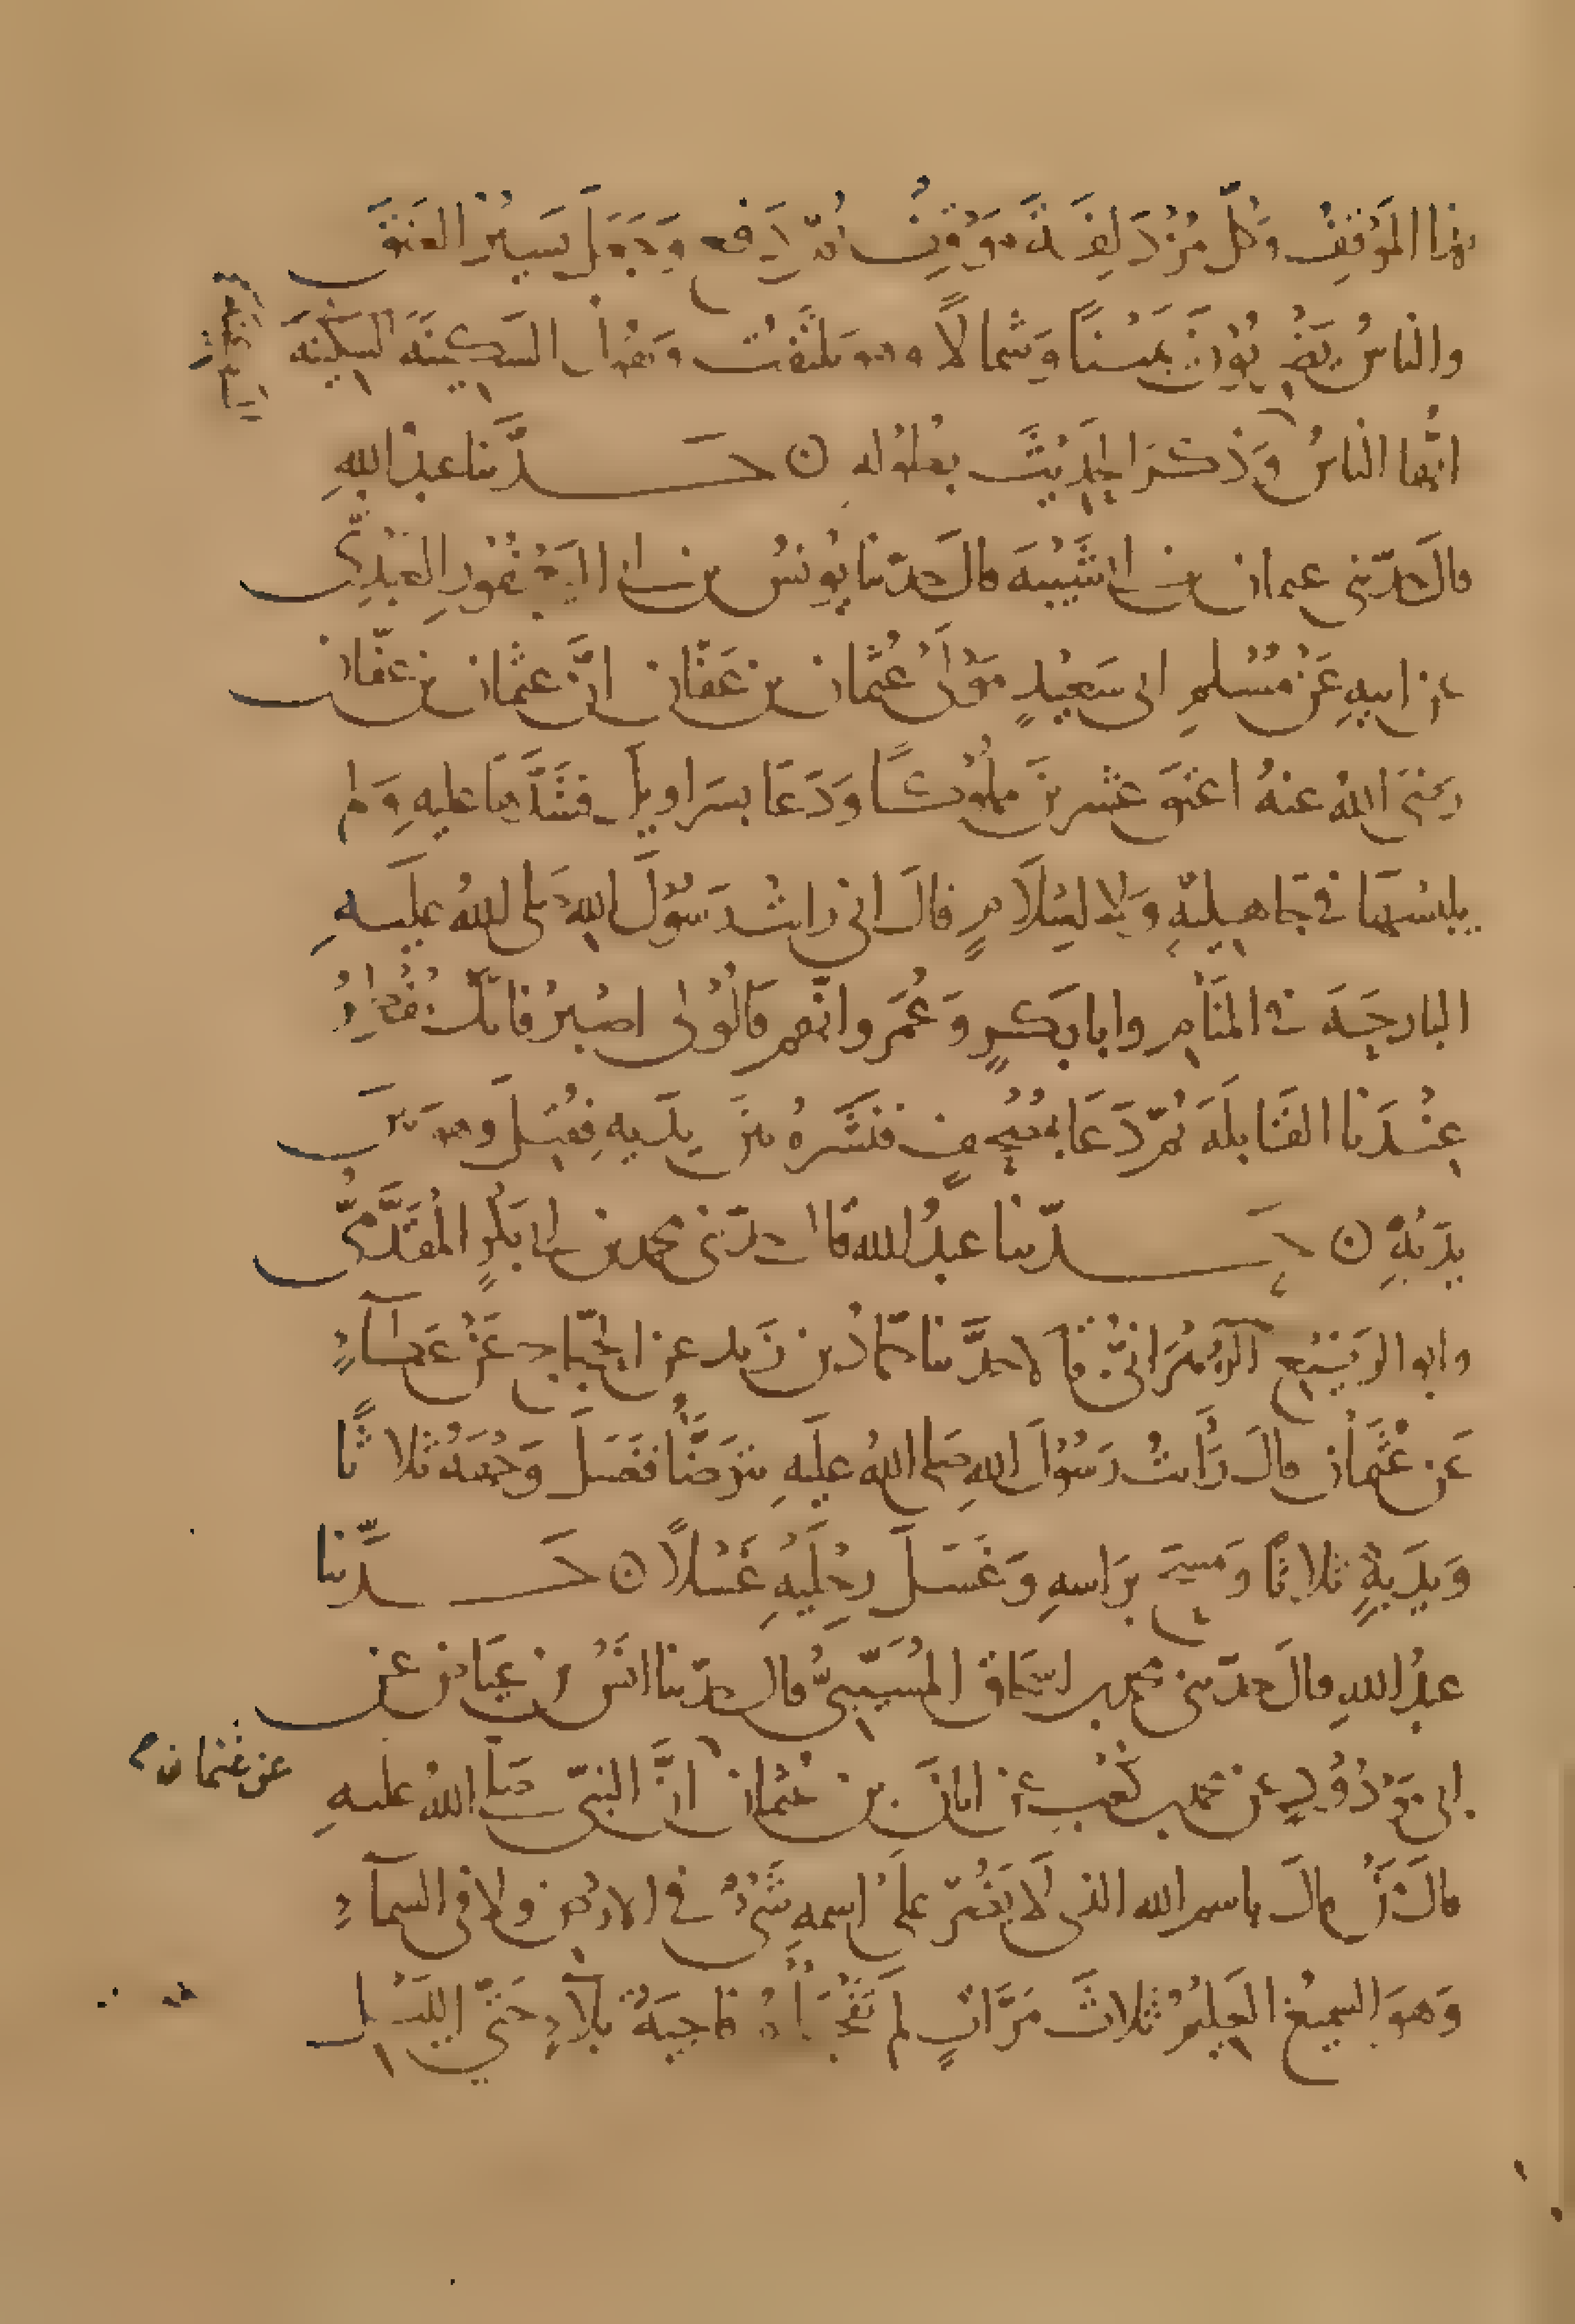 هذا المَوْقِفُ وَكُلُّ مُزْدَلِفَةَ مَوْقِفٌ ثُمّ دَفع وَجَعَلَ يَسِيْرُ العَنَقَ
والناسُ يَضْرِبُوْنَ يَمِيْنًا وَشِمالًا وهو يلتَفتُ وَيقول السَّكِينَةَ السَّكِيْنَةَ
ايُّها الناسُ وَذكرَ الحَدِيْثَ بِطُولِهِ ن حَــدَّثنا عبدُ اللهِ
قالَ حدّثني عثمان بن ابي شَيْبَةَ قالَ حدّثنا يُونسُ بن ابي اليَعْفُوْرِ العَبْدِيّ
عن ابيهِ عَنْ مُسْلمٍ ابي سَعِيْدٍ مَوْلَى عُثْمان بن عَفّان انَّ عثمان بن عفّان
رضيَ اللهُ عنهُ اعتقَ عشرينَ مملُوْكًا وَدَعَا بسَراويلَ فشَدَّهَا عليهِ وَلم
يلبسْهَا في جَاهِليّةٍ وَلا اِسْلَامٍ قالَ اني رايتُ رَسُوْلَ اللهِ صَلى اللهُ عليهِ
البارحِةَ في المنَامِ وابا بَكرٍ وَعُمَر وانّهم قَالُوْا لي اصْبِرْ فانكَ تُفْطِرُ
عِنْدَنا القَابلَةَ ثمّ دَعَا بمُصْحَفٍ فنَشَرهُ بينَ يدَيهِ فقُتِلَ وهو بينَ
يدَيْهِ ن حَــدّثنا عبدُ الله قالَ حدّثني محمد بن ابي بَكْرٍ المُقَدَّمِيُّ
وابو الرَبِيْعِ الزَّهْرَانيُّ قَالا حدَّثنا حمّادُ بن زَيد عن الحجّاجِ عَنْ عَطَآءٍ
عَن عُثْمَان قالَ رَأيتُ رَسُوْلَ اللهِ صَلى اللهُ عليهِ توَضَّأَ فغَسَلَ وَجْهَهُ ثلاثًا
وَيَدَيهِ ثلاثًا وَمسحَ برَاسهِ وَغَسَلَ رِجْليْهِ غَسْلًا ن حَــدّثنا
عبدُ اللهِ قالَ حدّثني محمد بن اسحَاق المُسَيّبيُّ قال حدّثنا انَسُ بن عيَاض عن
ابي مَوْدُوْدٍ عن محمد بن كَعْبٍ عن ابانَ بن عثمان انَّ النبيّ صَلى اللهُ عليهِ
عن عثمان
قالَ مَنْ قالَ باسم الله الذي لَا يَضُرّ علَى اسمهِ شَيْءٌ في الارْضِ ولا في السمآءِ
وَهوَ السميعُ العَلِيْمُ ثلاثَ مَرَّاتٍ لم تَفْجَأهُ فاجئَةُ بلآءٍ حَتّى الليْل